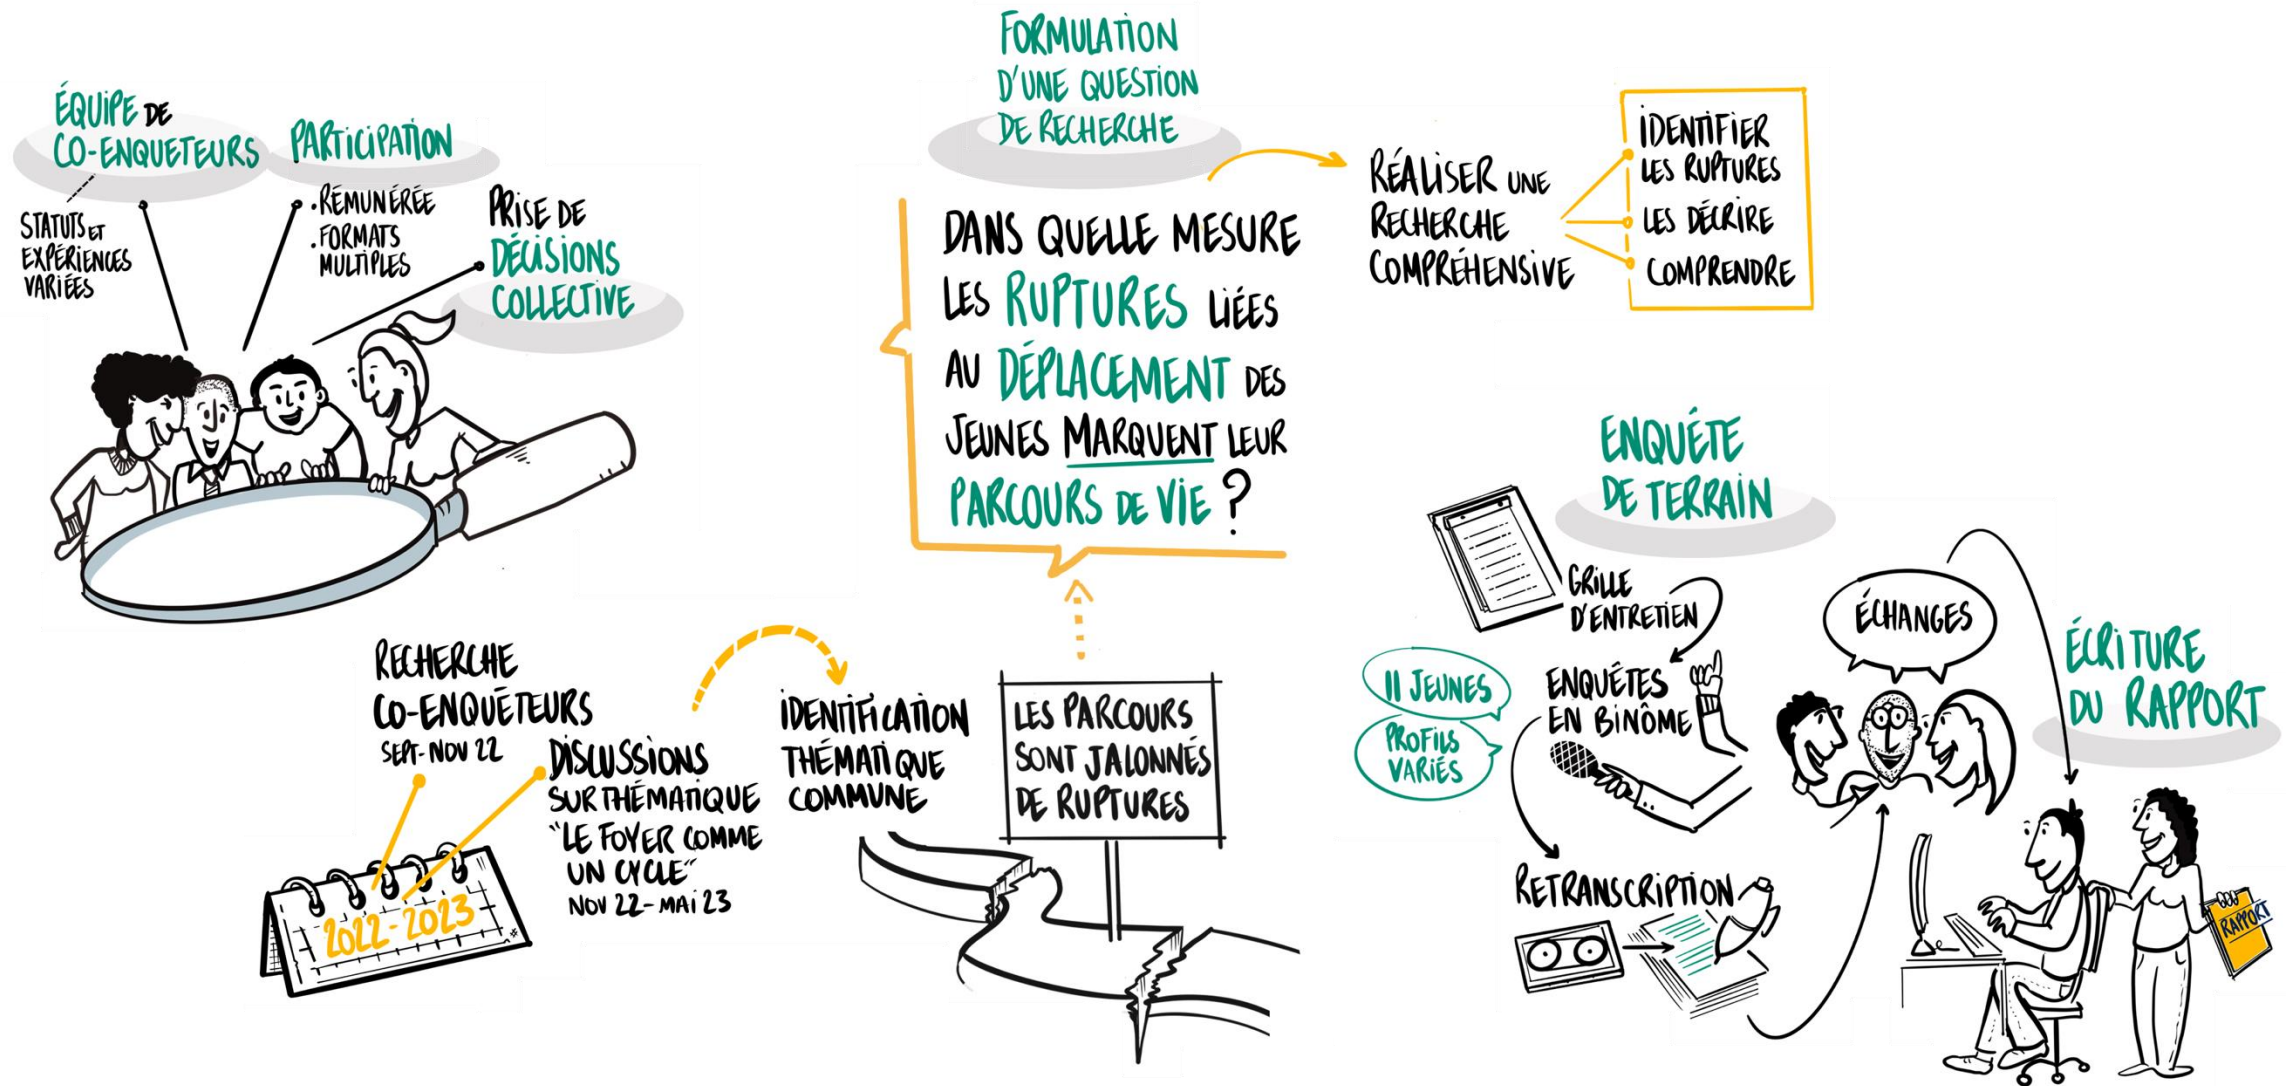 ÉQUIPE DE
CO-ENQUETEURS
STATUTS ET
EXPÉRIENCES
VARIÉES
PARTICIPATION
. RÉMUNÉRÉE
. FORMATS
MULTIPLES
PRISE DE
DÉCISIONS
COLLECTIVE
RECHERCHE
CO-ENQUÊTEURS
SEPT-NOV 22
2022-2023
DISCUSSIONS
SUR THÉMATIQUE
"LE FOYER COMME
UN CYCLE"
NOV 22 - MAI 23
IDENTIFICATION
THÉMATIQUE
COMMUNE
LES PARCOURS
SONT JALONNÉS
DE RUPTURES
FORMULATION
D'UNE QUESTION
DE RECHERCHE
DANS QUELLE MESURE
LES RUPTURES LIÉES
AU DÉPLACEMENT DES
JEUNES MARQUENT LEUR
PARCOURS DE VIE ?
RÉALISER UNE
RECHERCHE
COMPRÉHENSIVE
IDENTIFIER
LES RUPTURES
LES DÉCRIRE
COMPRENDRE
ENQUÊTE
DE TERRAIN
GRILLE
D'ENTRETIEN
11 JEUNES
PROFILS
VARIÉS
ENQUÊTES
EN BINÔME
RETRANSCRIPTION
ÉCHANGES
ÉCRITURE
DU RAPPORT
RAPPORT